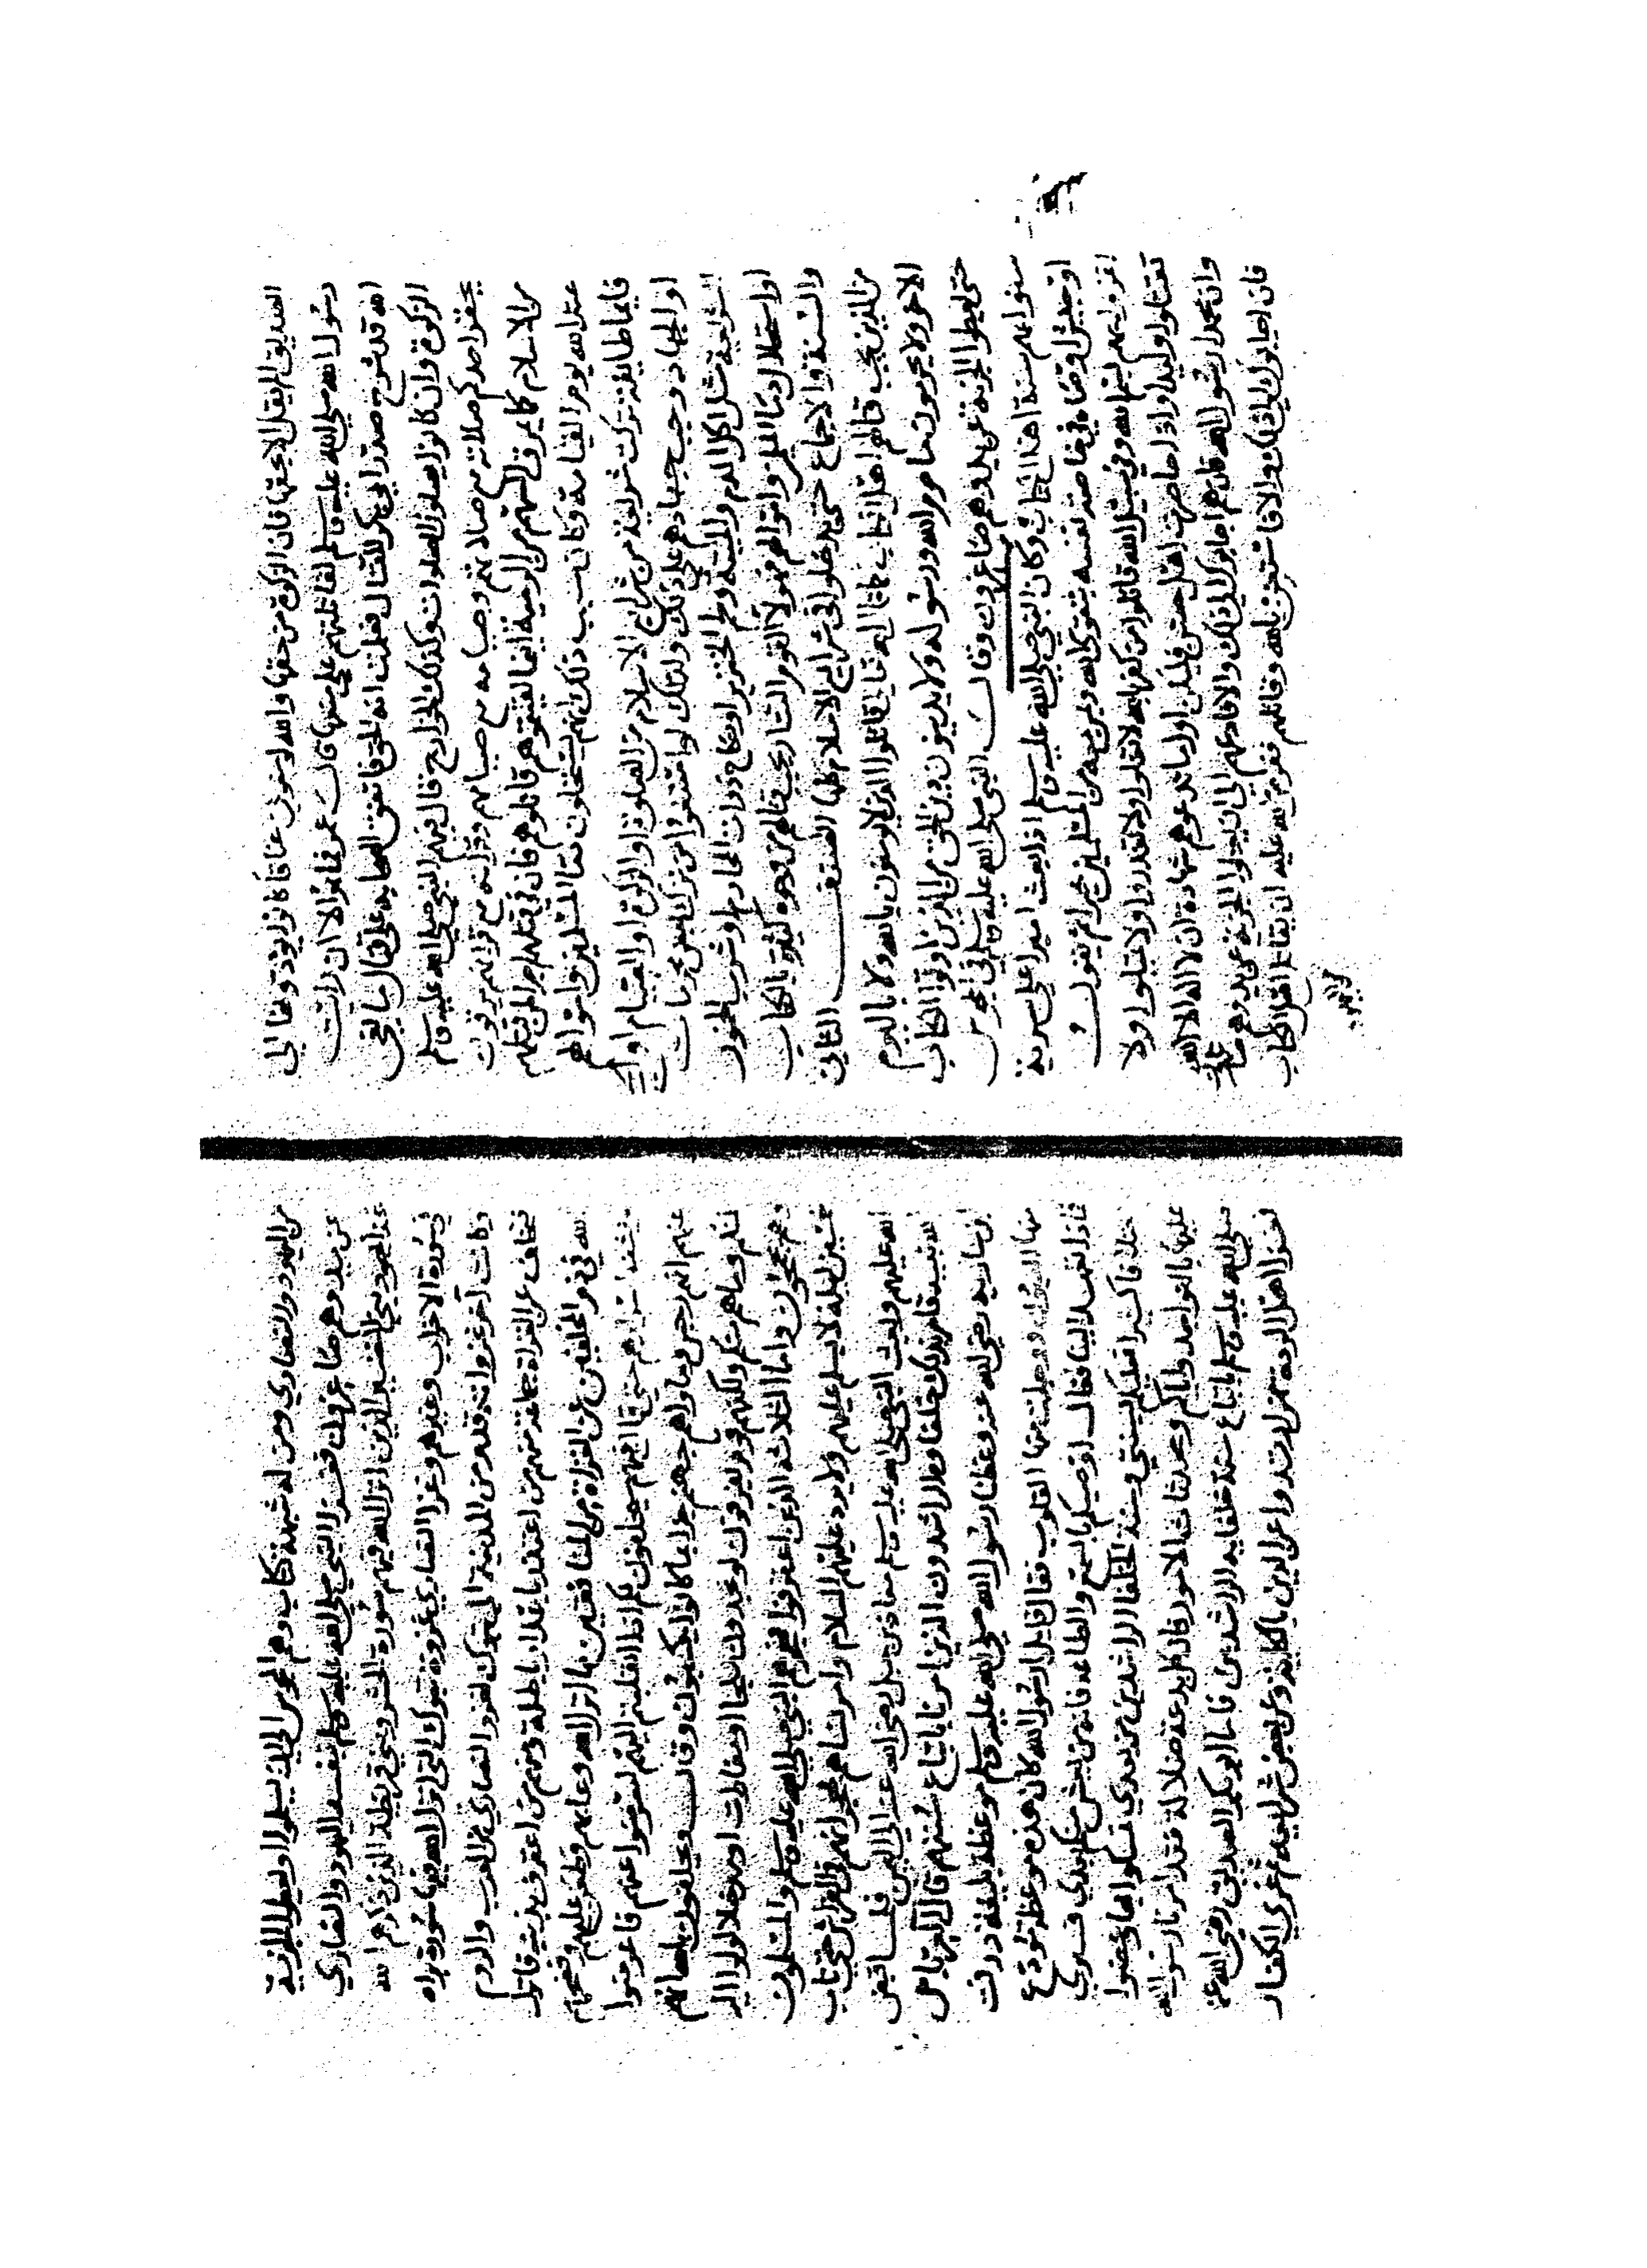 الصديق الم يقل الا بحقها فان الزكوة من حقها والله لو منعوني عناقا كانوا يؤدونها الى
رسول الله صلى الله عليه وسلم لقاتلتهم على منعها قال عمر فما هو الا ان رايت
الله قد شرح صدر ابي بكر للقتال فعلمت انه الحق فاتفق الصحابة على قتال مانعي
الزكوة وان كانوا يصلون الصلوات وكذلك الخوارج قال فيهم النبي صلى الله عليه وسلم
يحقر احدكم صلاته مع صلاتهم وصيامه مع صيامهم وقراته مع قراتهم يمرقون
من الاسلام كما يمرق السهم من الرمية اينما لقيتموهم قاتلوهم فان في قتلهم اجر لمن قتلهم
عند الله يوم القيامة وكان سبب ذلك انهم يستحلون دماء المسلمين واموالهم
فايما طايفة تركت شريعة من شرايع الاسلام من الصلوة او الزكوة او الصيام او
او الجهاد وجب جهادهم على ذلك وكذلك لو امتنعوا من ترك بعض محرمات
الشريعة مثل اكل الدم والميتة ولحم الخنزير او نكاح ذوات المحارم او شرب الخمر
او استحلال دماء المسلمين واموالهم فهولا القوم التتار يجب قتالهم من وجوه كثيرة بالكتاب
والسنة والاجماع حتى يدخلوا في شرايع الاسلام كلها الصنف الثاني
من الذين يجب قتالهم اهل الكتاب كما قال الله تعالى قاتلوا الذين لا يومنون بالله ولا باليوم
الاخر ولا يحرمون ما حرم الله ورسوله ولا يدينون دين الحق من الذين اوتوا الكتاب
حتى يعطوا الجزية عن يد وهم صاغرون وقال النبي صلى الله عليه وسلم في مجوس
سنوا بهم سنة اهل الكتاب وكان النبي صلى الله عليه وسلم اذا بعث اميرا على سرية
او جيش اوصاه في خاصة نفسه بتقوى الله وبمن معه من المسلمين خيرا ثم يقول
اغزوا بسم الله وفي سبيل الله قاتلوا من كفر بالله لا تغلوا ولا تغدروا ولا تمثلوا ولا
تقتلوا وليدا واذا حاصرت اهل حصن فليكن اول ما تدعوهم شهادة ان لا اله الا الله
وان محمدا رسول الله فان هم اجابوك الى ذلك والا فادعهم الى ان يبذلوا الجزية عن يد وهم
فان اجابوك الى ذلك والا فاستعن بالله وقاتلهم ففرض الله عليه ان يقاتل اهل الكتاب
من اليهود والنصارى ومن له شبهة كتاب وهم المجوس الى ان يسلموا او يعطوا الجزية
عن يد وهم صاغرون فغزا النبي صلى الله عليه وسلم بنفسه اليهود والنصارى
غزا اليهود بني النضير الذين انزل الله فيهم سورة الحشر وبني قريظة الذين ذكرهم الله
في سورة الاحزاب وغيرهم وغزا النصارى غزوة تبوك التي انزل الله فيها سورة براه
وكانت آخر غزواته قدم من المدينة الى تبوك لغزو النصارى من العرب والروم
فتخلف عن الغزاة جماعة منهم من اعتذر باعذار باطلة ومنهم من اعترف بذنبه فانزل
الله في ذم المخلفين عن الغزاة من المنافقين ما انزل الله وعابهم وطعن عليهم وفضحهم
حتى قال فيهم سيحلفون لكم اذا انقلبتم اليهم لتعرضوا عنهم فاعرضوا
عنهم انهم رجس وماواهم جهنم جزا بما كانوا يكسبون وقال ويحلفون بالله انهم
لمنكم وما هم منكم ولكنهم قوم يفرقون لو يجدون ملجا او مغارات او مدخلا لولوا اليه
وهم يجمحون واما الثلاثة الذين اعترفوا فهجرهم النبي صلى الله عليه وسلم والمسلمون
خمسين ليلة لا يسلم عليهم ولا يرد عليهم السلام وامر نساهم حتى تاب
الله عليهم وبعث النبي صلى الله عليه وسلم معاذ بن جبل رضي الله عنه الى اليمن فلما قبض
الله نبيه قام بذلك خلفاوه الراشدون الذين امرنا باتباع سنتهم قال العرباض
بن سارية رضي الله عنه وعظنا رسول الله صلى الله عليه وسلم موعظة بليغة ذرفت
منها العيون ووجلت منها القلوب فقال قايل يا رسول الله كان هذه موعظة مودع
فماذا تعهد الينا فقال اوصيكم بالسمع والطاعة فانه من يعش منكم بعدي فسيرى
اختلافا كثيرا فعليكم بسنتي وسنة الخلفا الراشدين من بعدي تمسكوا بها وعضوا
عليها بالنواجذ واياكم ومحدثات الامور فان كل بدعة ضلالة فقد امرنا رسول الله
صلى الله عليه وسلم باتباع سنة خلفايه الراشدين فاما ابو بكر الصديق رضي الله عنه
فغزا اهل الردة من ارتدوا عن الدين بالكلية وعن بعض شرايعه ثم غزى الكفار